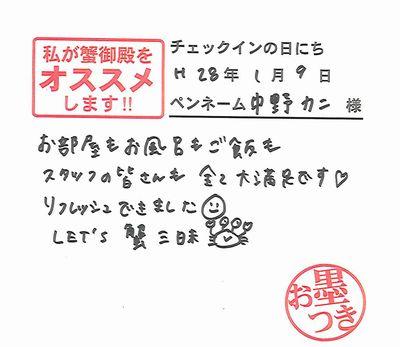 私が蟹御殿を
オススメ
します!!
チェックインの日にち
H 28年 1月 9日
ペンネーム 中野カニ 様
お部屋もお風呂もご飯も
スタッフの皆さんも 全て大満足です♡
リフレッシュできました
LET'S 蟹 三昧
お墨つき